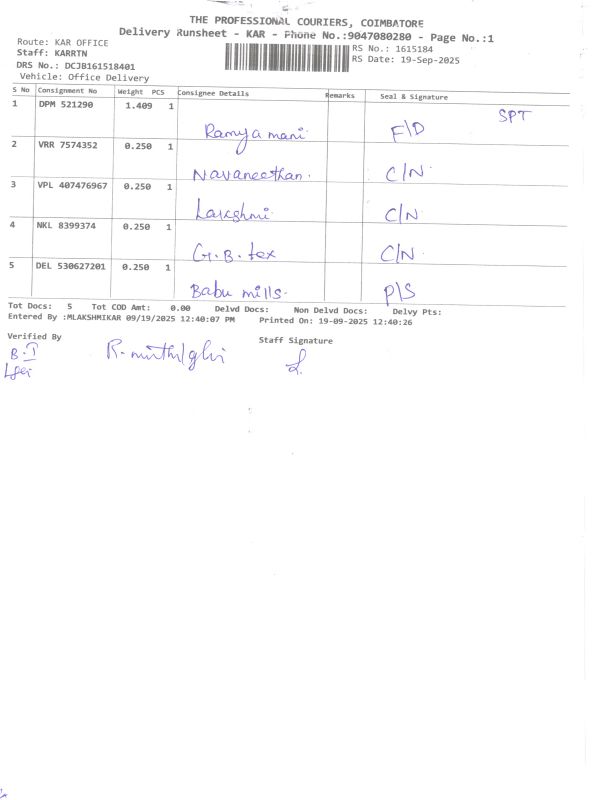 THE PROFESSIONAL COURIERS, COIMBATORE
Delivery Runsheet - KAR - Phone No.:9047080280 - Page No.:1
Route: KAR OFFICE
Staff: KARRTN
RS No.: 1615184
DRS No.: DCJB161518401
RS Date: 19-Sep-2025
Vehicle: Office Delivery
S No Consignment No Weight PCS Consignee Details Remarks Seal & Signature
1 DPM 521290 1.409 1 SPT
Ramya mani F/D
2 VRR 7574352 0.250 1
Navaneethan. C/N.
3 VPL 407476967 0.250 1
Lakshmi C/N
4 NKL 8399374 0.250 1
G.B. tex C/N.
5 DEL 530627201 0.250 1
Babu mills. P/S
Tot Docs: 5 Tot COD Amt: 0.00 Delvd Docs: Non Delvd Docs: Delvy Pts:
Entered By :MLAKSHMIKAR 09/19/2025 12:40:07 PM Printed On: 19-09-2025 12:40:26
Verified By Staff Signature
B.T